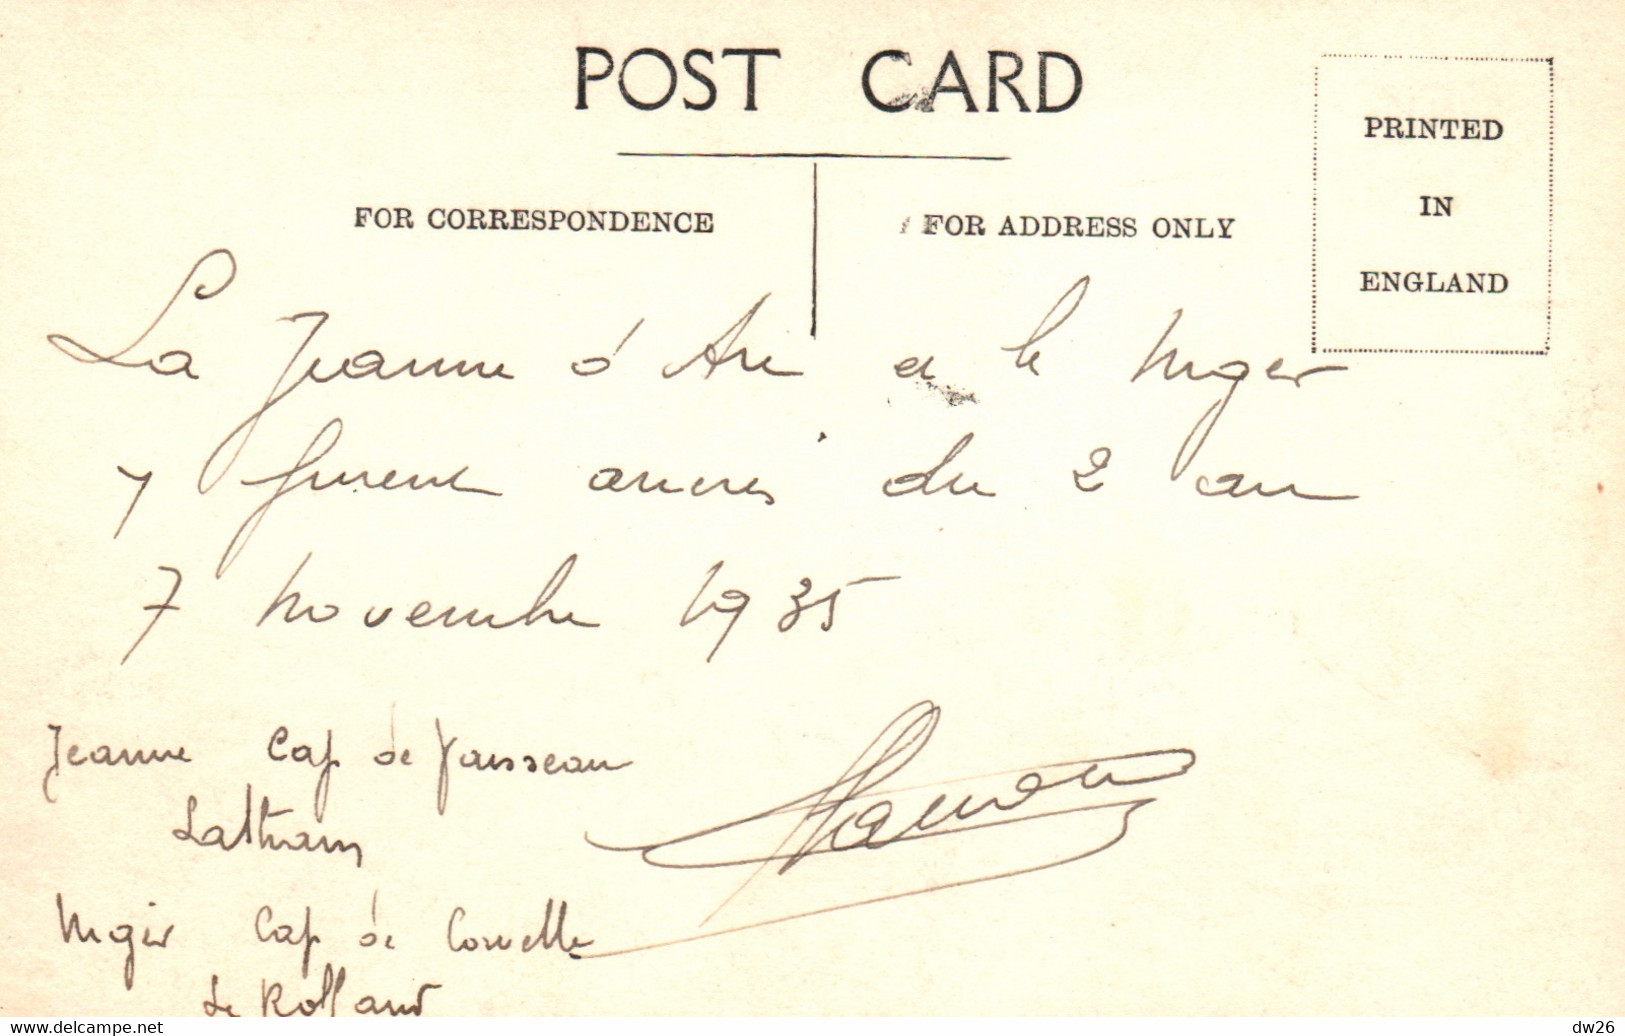 POST CARD
PRINTED
IN
ENGLAND
FOR CORRESPONDENCE
FOR ADDRESS ONLY
La Jeanne d'Arc et le Niger
y furent ancrés du 2 au
7 Novembre 1935
Jeanne Cap de Vaisseau
Latham
Niger Cap de Corvette
Le Rolland
www.delcampe.net
dw26